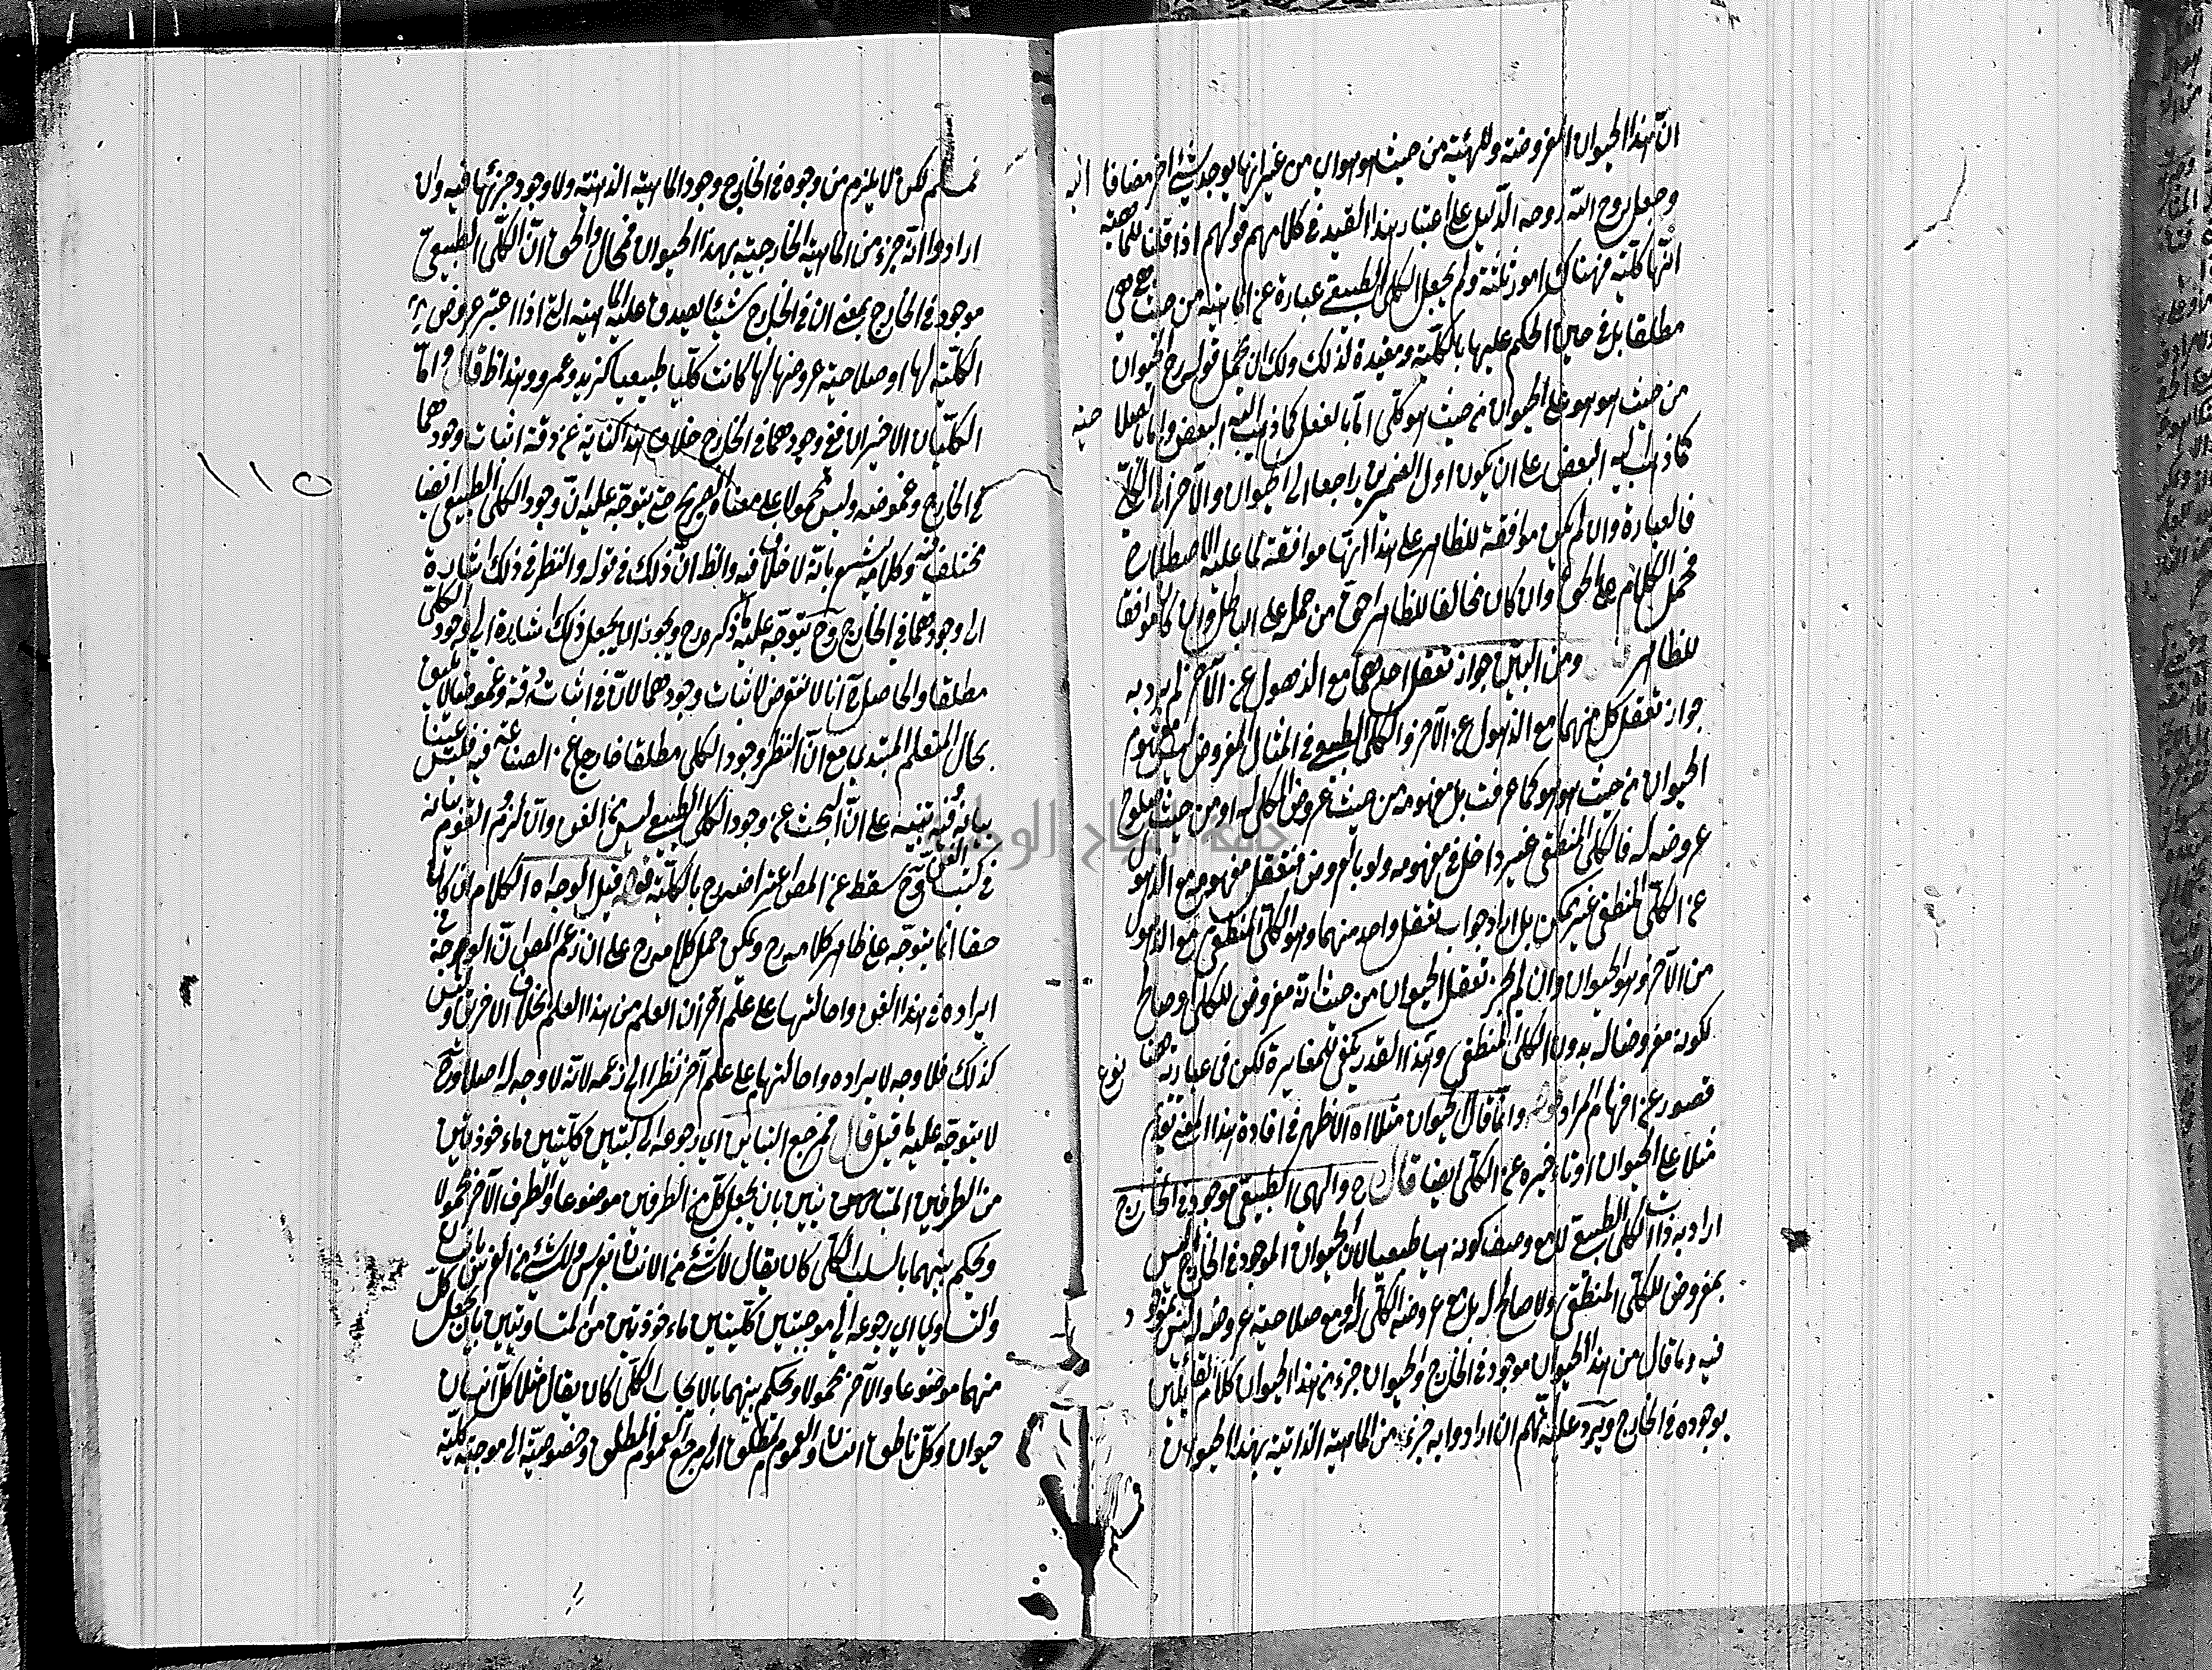 ان هذا الحيوان المفروضة وللهيئة من حيث هو هو اي من غير انها يوجد شيئ اخر مضافا اليه
وجعل روح الله روحه الدليل على اعتبار هذا القيد في كلامهم قولهم اذا قلنا للماهية
انها كلية فهناك امور ثلثة ولم يجعل الكلي الطبيعي عبارة عن الماهية من حيث هي هي
مطلقا بل في حين الحكم عليها بالكلية ومقيدة لذلك ولك ان تحمل قوله رح الحيوان
من حيث هو هو على الحيوان من حيث هو كلي اما بالفعل كما ذهب اليه البعض واما بالصلاحية
كما ذهب اليه البعض على ان يكون اول الضميرين راجعا الى الحيوان والآخر الى الكلي
فالعبارة وان لم يكن موافقة للظاهر على هذا انها موافقة لما عليه الاصطلاح
فحمل الكلام على الحق وان كان مخالفا للظاهر احق من حمله على الباطل وان كان موافقا
للظاهر ومن البين جواز تعقل احدهما مع الذهول عن الآخر لم يرد به
جواز تعقل كل منهما مع الذهول عن الآخر والكلي الطبيعي في المثال المفروض ليس مفهوم
الحيوان من حيث هو هو كما عرفت بل مفهومه من حيث عروض الكلي له او من حيث صلوح
عروضه له فالكلي المنطقي غير داخل في مفهومه ولو بالعروض فتعقل مفهومه مع الذهول
عن الكلي المنطقي غير ممكن بل اراد جواب تعقل واحد منهما وهو الكلي المنطقي مع الذهول
من الآخر وهو الحيوان وان لم يجز تعقل الحيوان من حيث انه معروض للكلي او صالح
لكونه معروضا له بدون الكلي المنطقي وهذا القدر يكفي للمغايرة لكن في عبارته هنا نوع
قصور عن افهام المراد قوله وانما قال الحيوان مثلا اه الاظهر في افادة هذا المعنى تقديم
مثلا على الحيوان او تاخيره عن الكلي ايضا قال رح والكلي الطبيعي موجود في الخارج
اراد به ذات الكلي الطبيعي لا مع وصف كونه كليا طبيعيا لان الحيوان الموجود في الخارج ليس
بمعروض للكلي المنطقي ولا صالح له بل مع عروض الكلي له او مع صلاحية عروضه له ليس بموجود
فيه وما قال من هذا الحيوان موجود في الخارج والحيوان جزء من هذا الحيوان كلام القائلين
بوجوده في الخارج ويرد عليه انهم ان ارادوا به جزء من الماهية الذاتية بهذا الحيوان
فمسلم لكن لا يلزم من وجوه في الخارج وجود الماهية الذهنية ولا وجود جزئها فيه وان
ارادوا انه جزء من الماهية الخارجية بهذا الحيوان فمحال والحق ان الكلي الطبيعي
موجود في الخارج بمعنى ان في الخارج شيئا يصدق عليه الماهية التي اذا اعتبر عروض
الكلية لها او صلاحية عروضها لها كانت كليا طبيعيا كزيد وعمرو وهذا ظ قال واما
الكليان الاخيران ففي وجودهما في الخارج خلاف هذا كناية عن دقة اثبات وجودهما
في الخارج وغموضه وليس محمولا على معناه الصريح حتى يتوجه عليه ان وجود الكلي الطبيعي ايضا
مختلف فيه وكلامه يشعر بانه لا خلاف فيه والظ ان ذلك في قوله والنظر في ذلك اشارة
الى وجودهما في الخارج وح يتوجه عليه ما ذكره رح ويجوز ان يجعل ذلك اشارة الى وجود الكلي
مطلقا والحاصل انا لا نتعرض لاثبات وجودهما لان في اثبات دقة وغموضا لا يليق
بحال المتعلم المبتدي مع ان النظر وجود الكلي مطلقا خارج عن الصناعة فيه فليس علينا
بيانه فيه تنبيه على ان البحث عن وجود الكلي الطبيعي ليس من الفن وان لزم القوم بيانه
في كتب الفن وح سقط عن المص اعتراضه رح بالكلية قوله قيل الوجه اه الكلام ان كان
حقا انما يتوجه على ظاهر كلامه رح ويمكن حمل كلامه رح على ان زعم المص ان الوجه في
ايراده في هذا الفن واحالتها على علم آخر ان العلم من هذا العلم بخلاف الاخرين وليس
كذلك فلا وجه لايراده واحالتها على علم آخر نظرا الى زعمه لانه لا وجه له اصلا وح
لا يتوجه عليه ما قيل قال فمرجع التباين اي رجوعه الى كليتين كليتين ماءخوذتين
من الطرفين المتباينين بان يجعل كل من الطرفين موضوعا والطرف الآخر محمولا
ويحكم بينهما بالسلب الكلي كان يقال لا شئ من الانسان بفرس ولا شئ من الفرس بانسان
والتساوي اي رجوعه الى موجبتين كليتين ماءخوذتين من المتساويين بان يجعل كل
منهما موضوعا والآخر محمولا ويحكم بينهما بالايجاب الكلي كان يقال مثلا كل انسان
حيوان وكل ناطق انسان والعموم المطلق اي مرجع العموم المطلق وخصوصيته الى موجبة كلية
١١٥
جامعة النجاح الوطنية